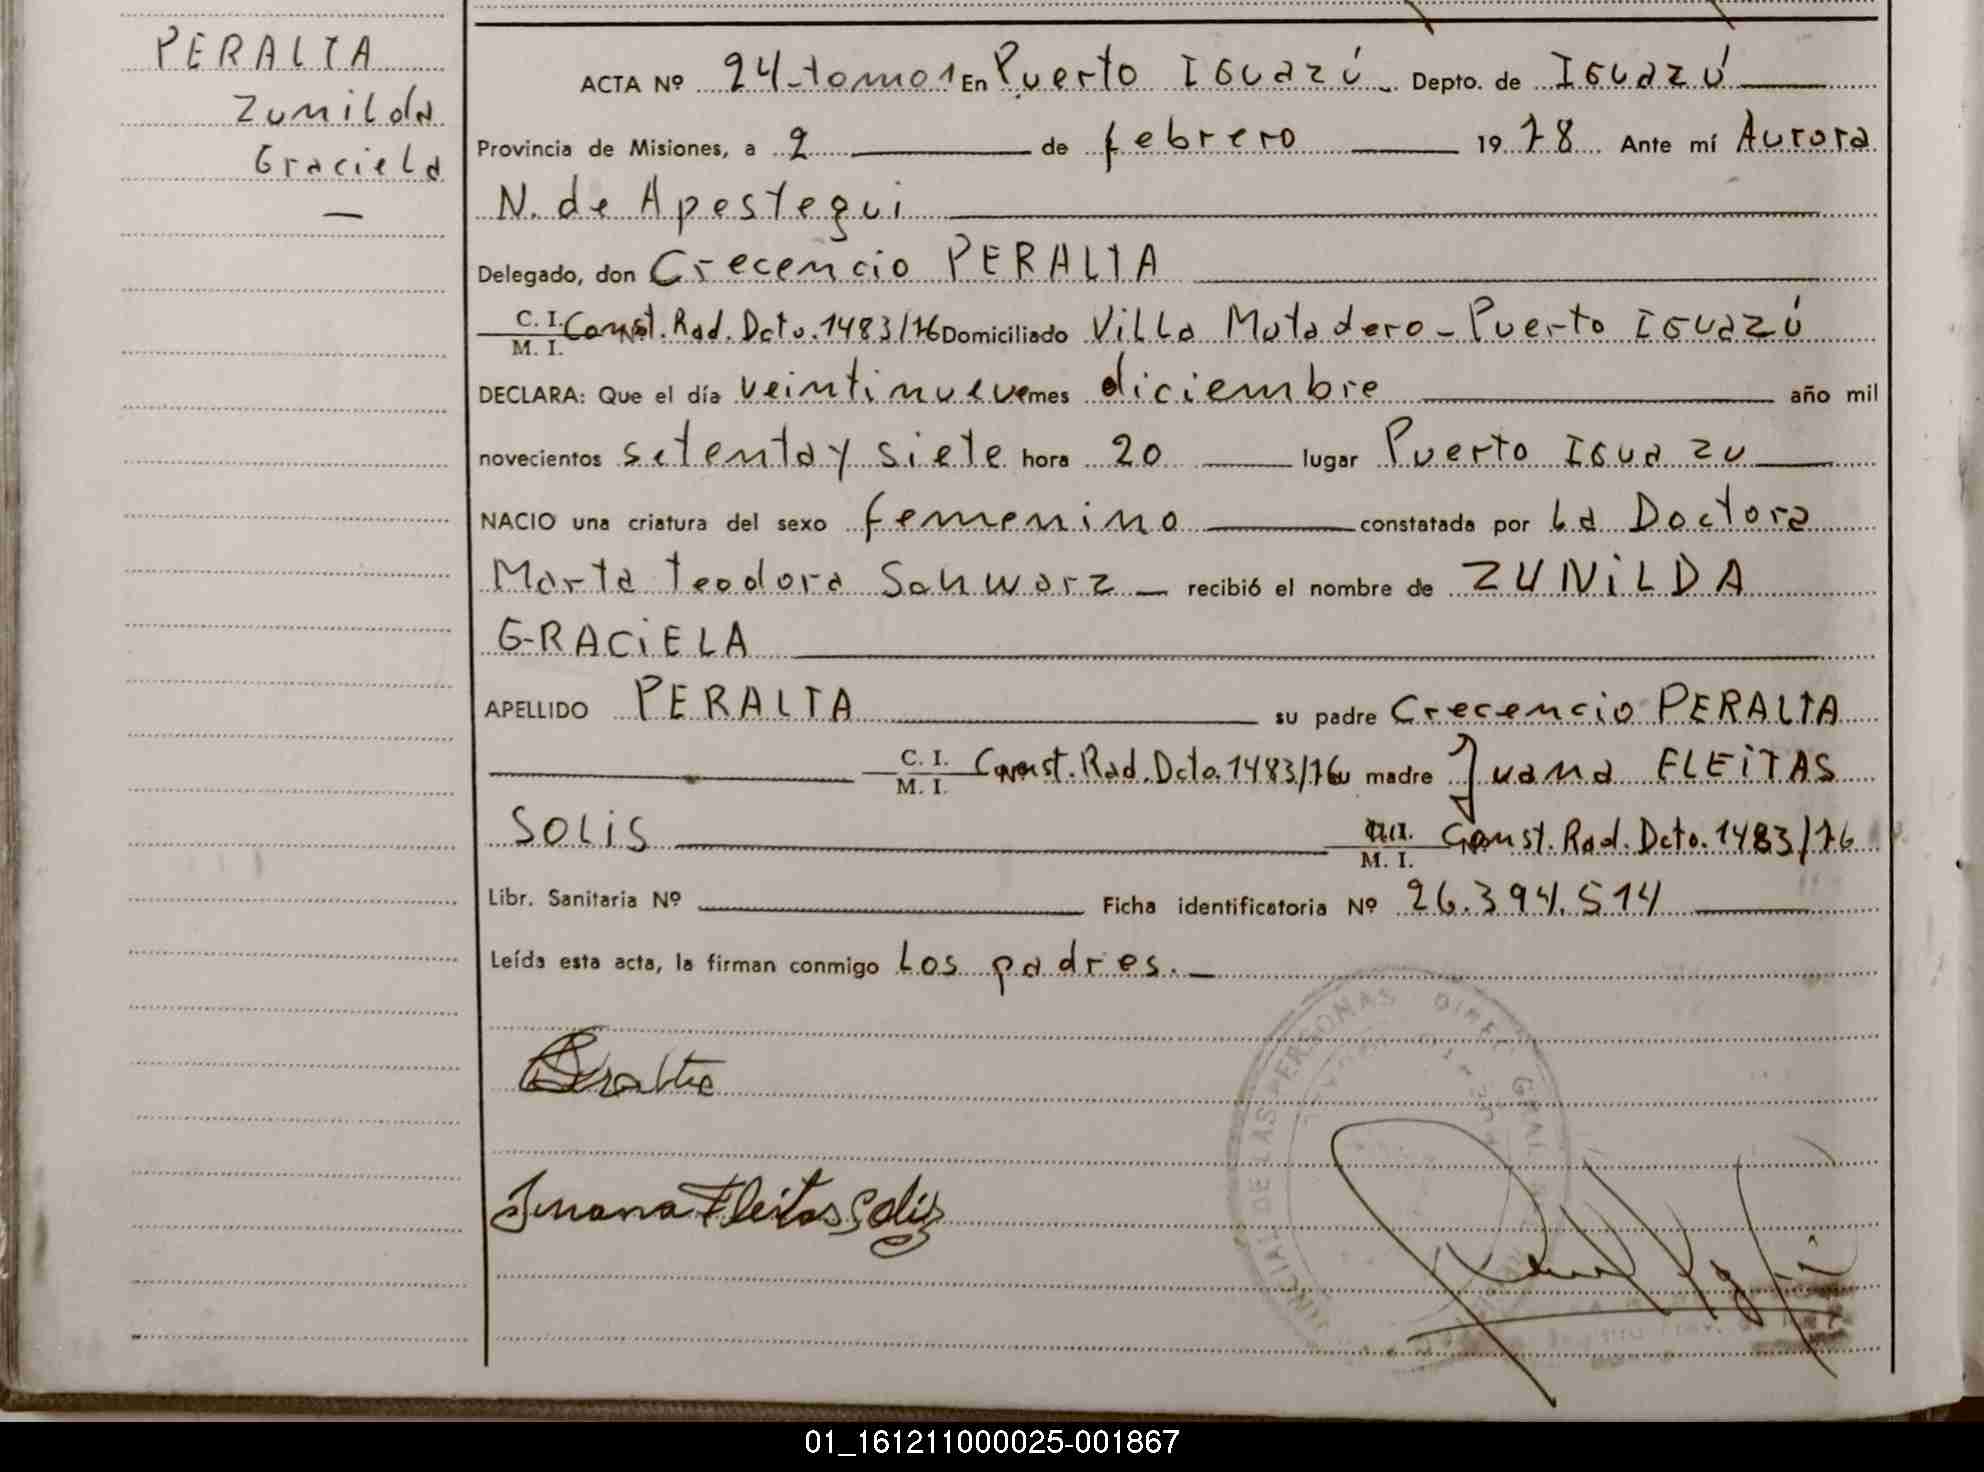 PERALTA
Zunilda
Graciela
ACTA Nº 24-tomo 1 En Puerto Iguazú Depto. de Iguazú
Provincia de Misiones, a 2 de febrero 1978 Ante mí Aurora
N. de Apestegui
Delegado, don Crecencio PERALTA
C. I. M. I. Const. Rad. Dcto. 1483/76 Domiciliado Villa Matadero - Puerto Iguazú
DECLARA: Que el día veintinueve mes diciembre año mil
novecientos setenta y siete hora 20 lugar Puerto Iguazu
NACIO una criatura del sexo femenino constatada por La Doctora
Marta Teodora Schwarz recibió el nombre de ZUNILDA
GRACIELA
APELLIDO PERALTA su padre Crecencio PERALTA
C. I. M. I. Const. Rad. Dcto. 1483/76 su madre Juana FLEITAS
SOLIS M. I. Const. Rad. Dcto. 1483/76
Libr. Sanitaria Nº Ficha identificatoria Nº 26.394.514
Leída esta acta, la firman conmigo Los padres.
Peralta
Juana Fleitas Solis
DE LAS PERSONAS DIREC. GRAL.
01_161211000025-001867